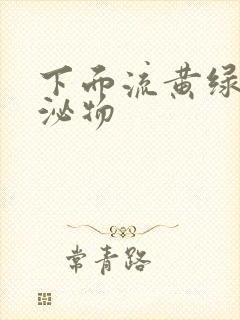 下而流黄绿
泌物
常青路